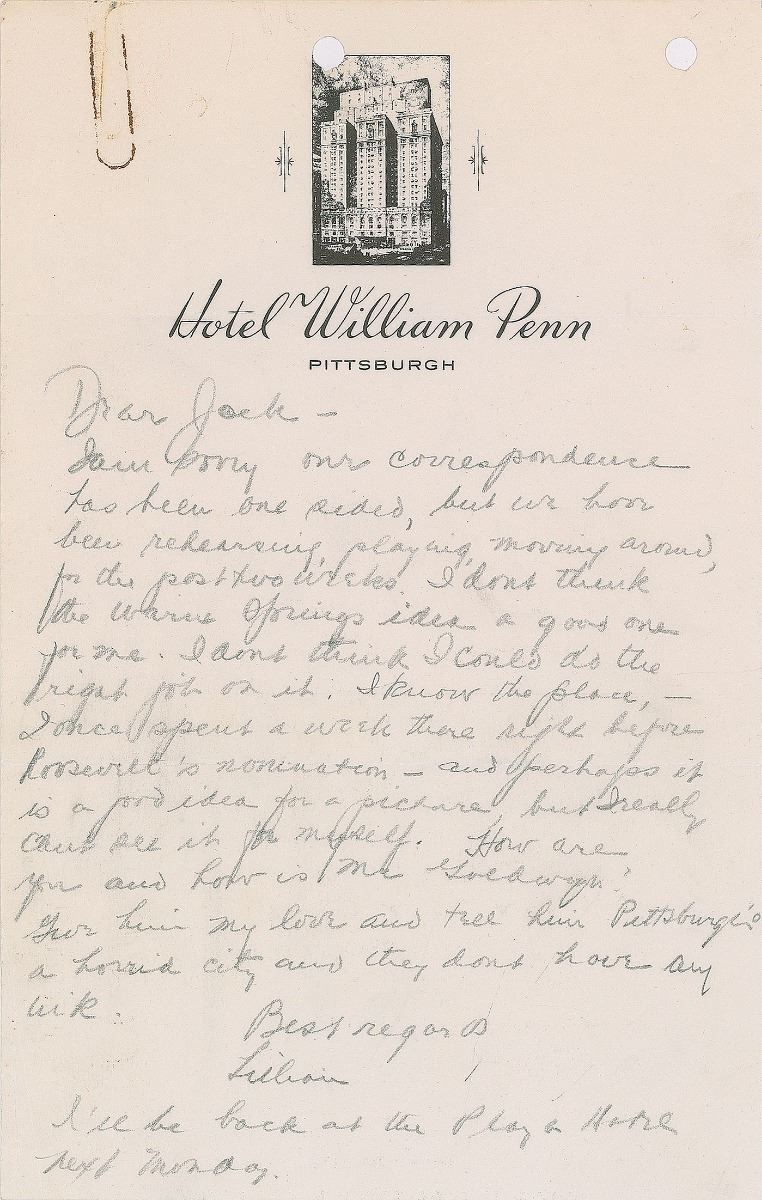 Hotel William Penn
PITTSBURGH
Dear Jack –
I am sorry our correspondence
has been one sided, but we have
been rehearsing, playing, moving around,
for the past two weeks. I dont think
the Warm Springs idea a good one
for me. I dont think I could do the
right job on it. I know the place, –
I once spent a week there right before
Roosevelt's nomination – and perhaps it
is a good idea for a picture, but I really
cant see it for myself. How are
you and how is Mr Goldwyn?
Give him my love and tell him Pittsburgh's
a horrid city and they dont have any
ink.
Best regards
Lillian
I'll be back at the Plaza Hotel
next Monday.